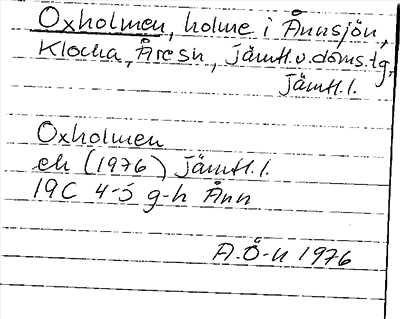 Oxholmen, holme i Ånnsjön,
Klocka, Åresn, Jämtl.v.doms.tg.
Jämtl.l.
Oxholmen
ek (1976) Jämtl.l.
19C 4-5 g-h Ånn
A.Ö-n 1976